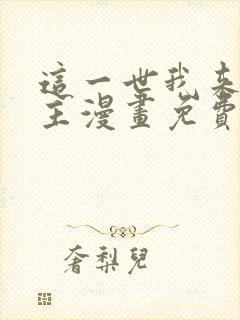 這一世我來
主漫畫免費
奢梨兒